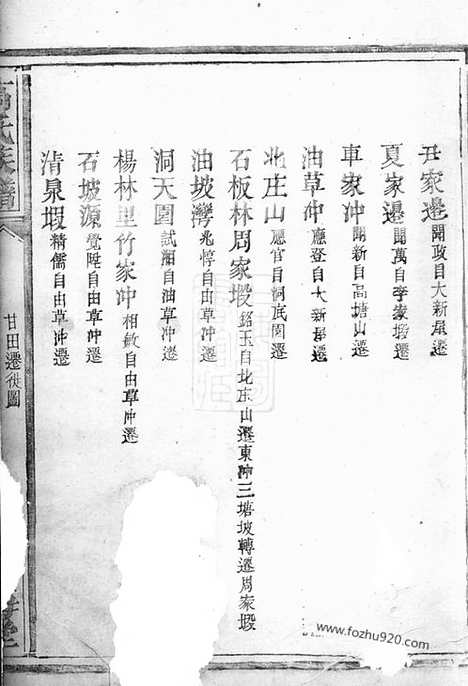 丑家邊 開政自大新屋遷
夏家邊 開萬自李家塅遷
車家冲 開新自高塘山遷
油草冲 應登自大新屋遷
北庄山 應官自洞底園遷
石板林周家塅 銘玉自北庄山遷東冲三塘坡轉遷周家塅
油坡灣 兆惇自由草冲遷
洞天園 試湘自油草冲遷
楊林里竹家冲 相敏自由草冲遷
石坡源 覺陞自由草冲遷
清泉塅 精儒自由草冲遷
氏族譜
甘田遷徙圖
堂
www.fozhu920.com